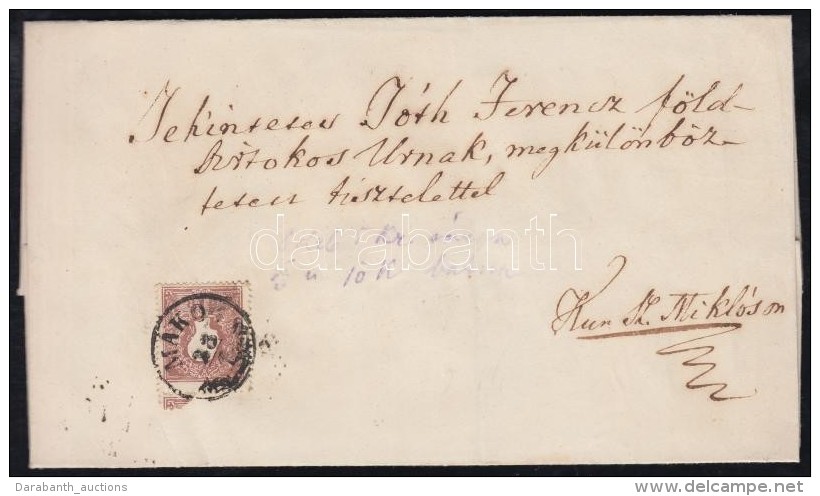 Tekintetes Tóth Ferencz föld-
birtokos Urnak, megkülönböz-
tesen tisztelettel
darabanth
10 K
Kun Sz. Miklóson
MAKO
23
Darabanth_auctions
www.delcampe.net